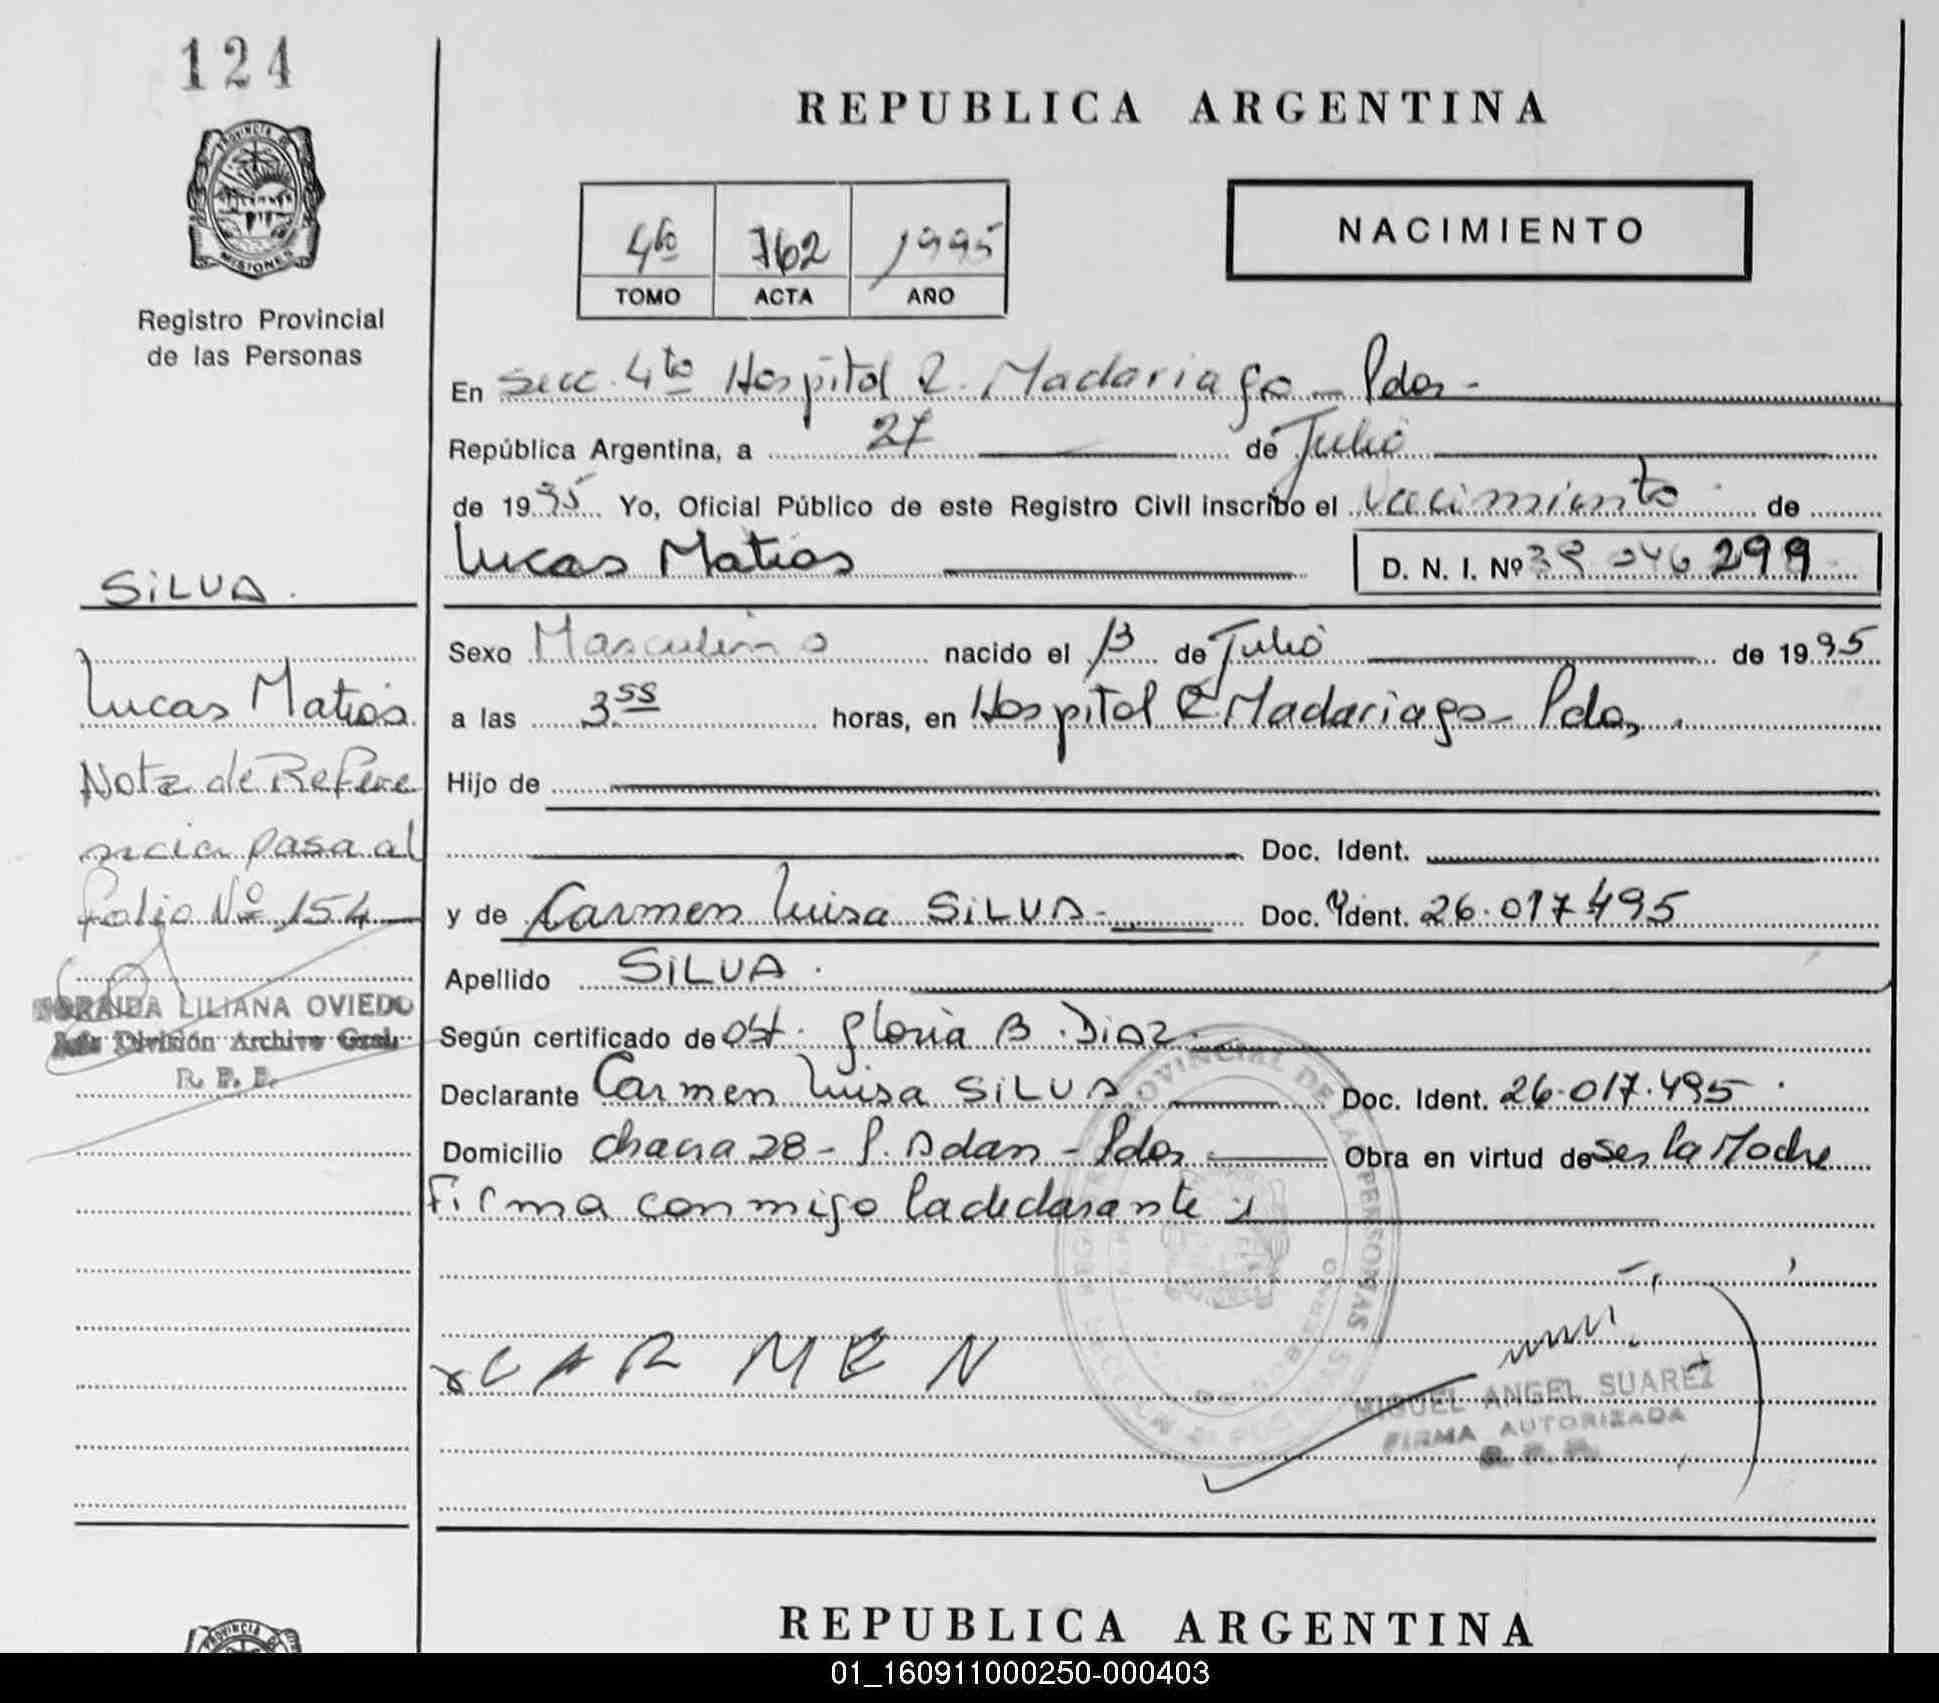 124
REPUBLICA ARGENTINA
PROVINCIA DE
MISIONES
Registro Provincial
de las Personas
4to 762 1995
TOMO ACTA AÑO
NACIMIENTO
En Secc. 4to Hospital R. Madariaga - Pdas -
República Argentina, a 27 de Julio
de 1995 Yo, Oficial Público de este Registro Civil inscribo el Nacimiento de
Lucas Matias D. N. I. Nº 299
SILVA.
Sexo Masculino nacido el 13 de Julio de 1995
Lucas Matias
a las 3 55 horas, en Hospital R Madariaga - Pdas.
Nota de Refere
Hijo de
ncia pasa al
Doc. Ident.
folio Nº 154
y de Carmen Luisa SILVA - Doc. Ident. 26.017.495
Apellido SILVA.
ZORAIDA LILIANA OVIEDO
Jefe División Archivo Gral.
R. P. P.
Según certificado de Ost. Gloria B. Diaz.
Declarante Carmen Luisa SILVA Doc. Ident. 26.017.495.
Domicilio Chacra 28 - S. Adan - Pdas Obra en virtud de ser la Madre
Firma conmigo la declarante;
PROVINCIAL DE LAS PERSONAS
x CARMEN
MIGUEL ANGEL SUAREZ
FIRMA AUTORIZADA
R. P. P.
REPUBLICA ARGENTINA
PROVINCIA DE
01_160911000250-000403